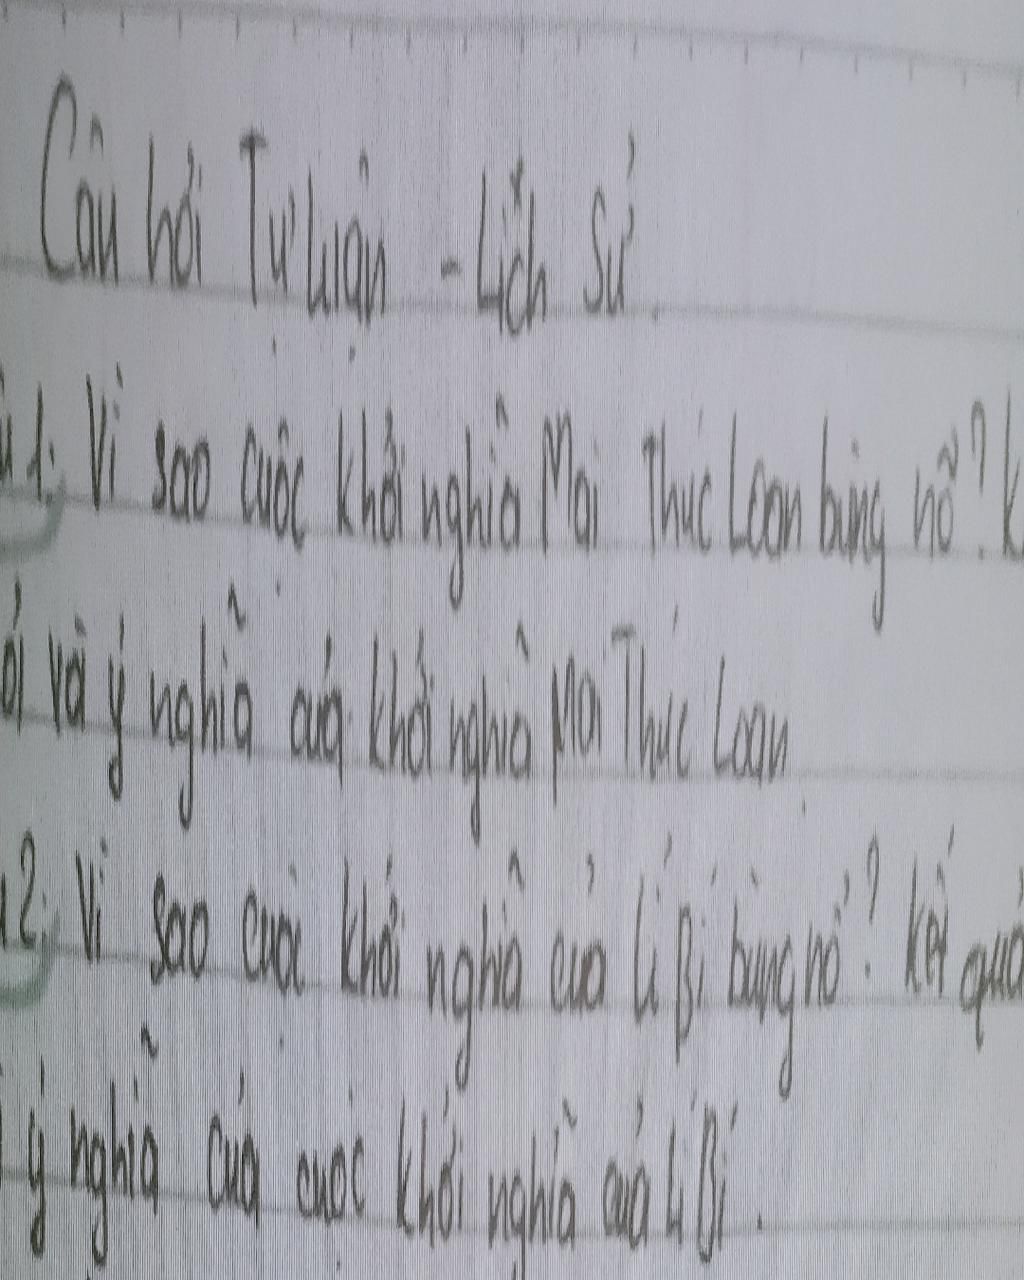 Câu hỏi Tự luận - Lịch Sử
1. Vì sao cuộc khởi nghĩa Mai Thúc Loan bùng nổ?
và ý nghĩa của khởi nghĩa Mai Thúc Loan
2. Vì sao cuộc khởi nghĩa của Lí Bí bùng nổ? Kết quả
ý nghĩa của cuộc khởi nghĩa của Lí Bí.